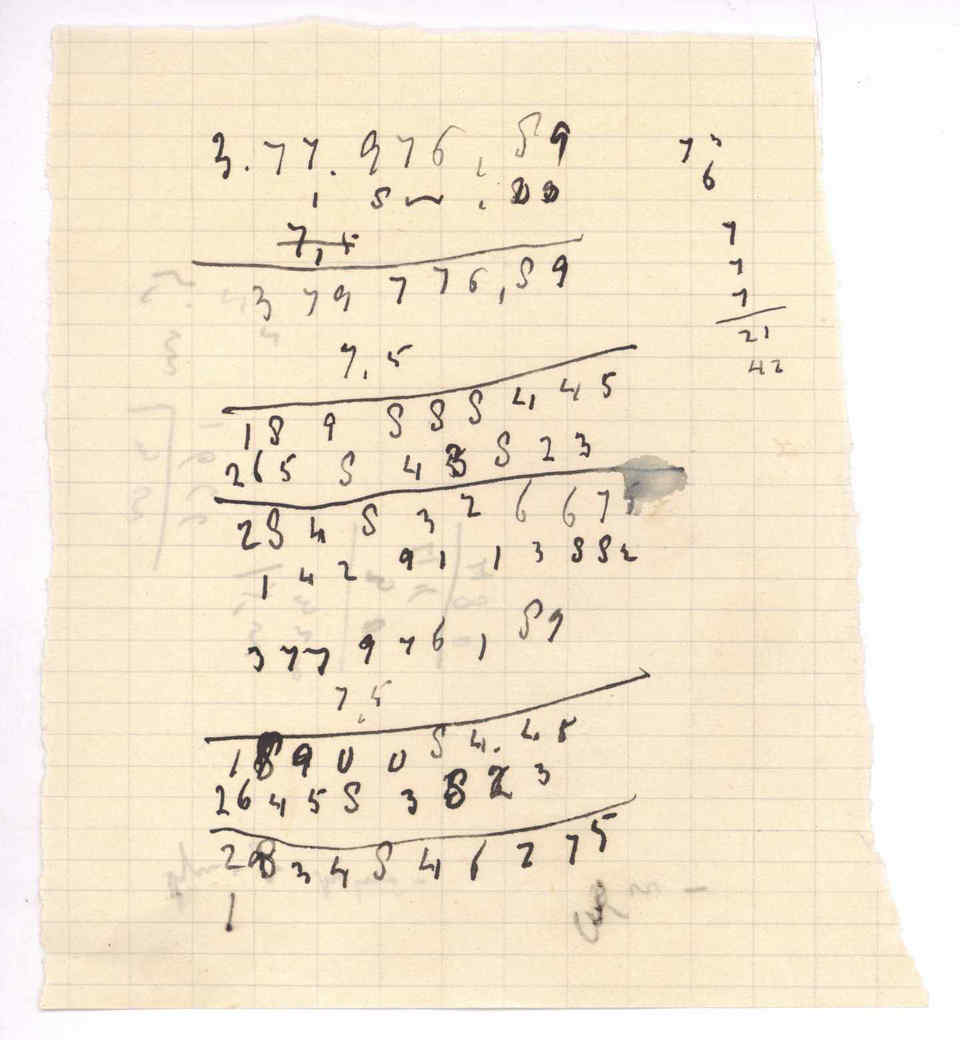 3.77.976,89
1 8 , 00
7,5
379 776,89
7,5
189 888 4,45
265 8 43 8 23
284 8 3 2 6 6 75
1 4 2 9 1 1 3 8 8 2
377 976, 89
7,5
189 0 0 8 4.45
26458 3 8 2 3
2834846275
1
73
6
7
7
7
21
42